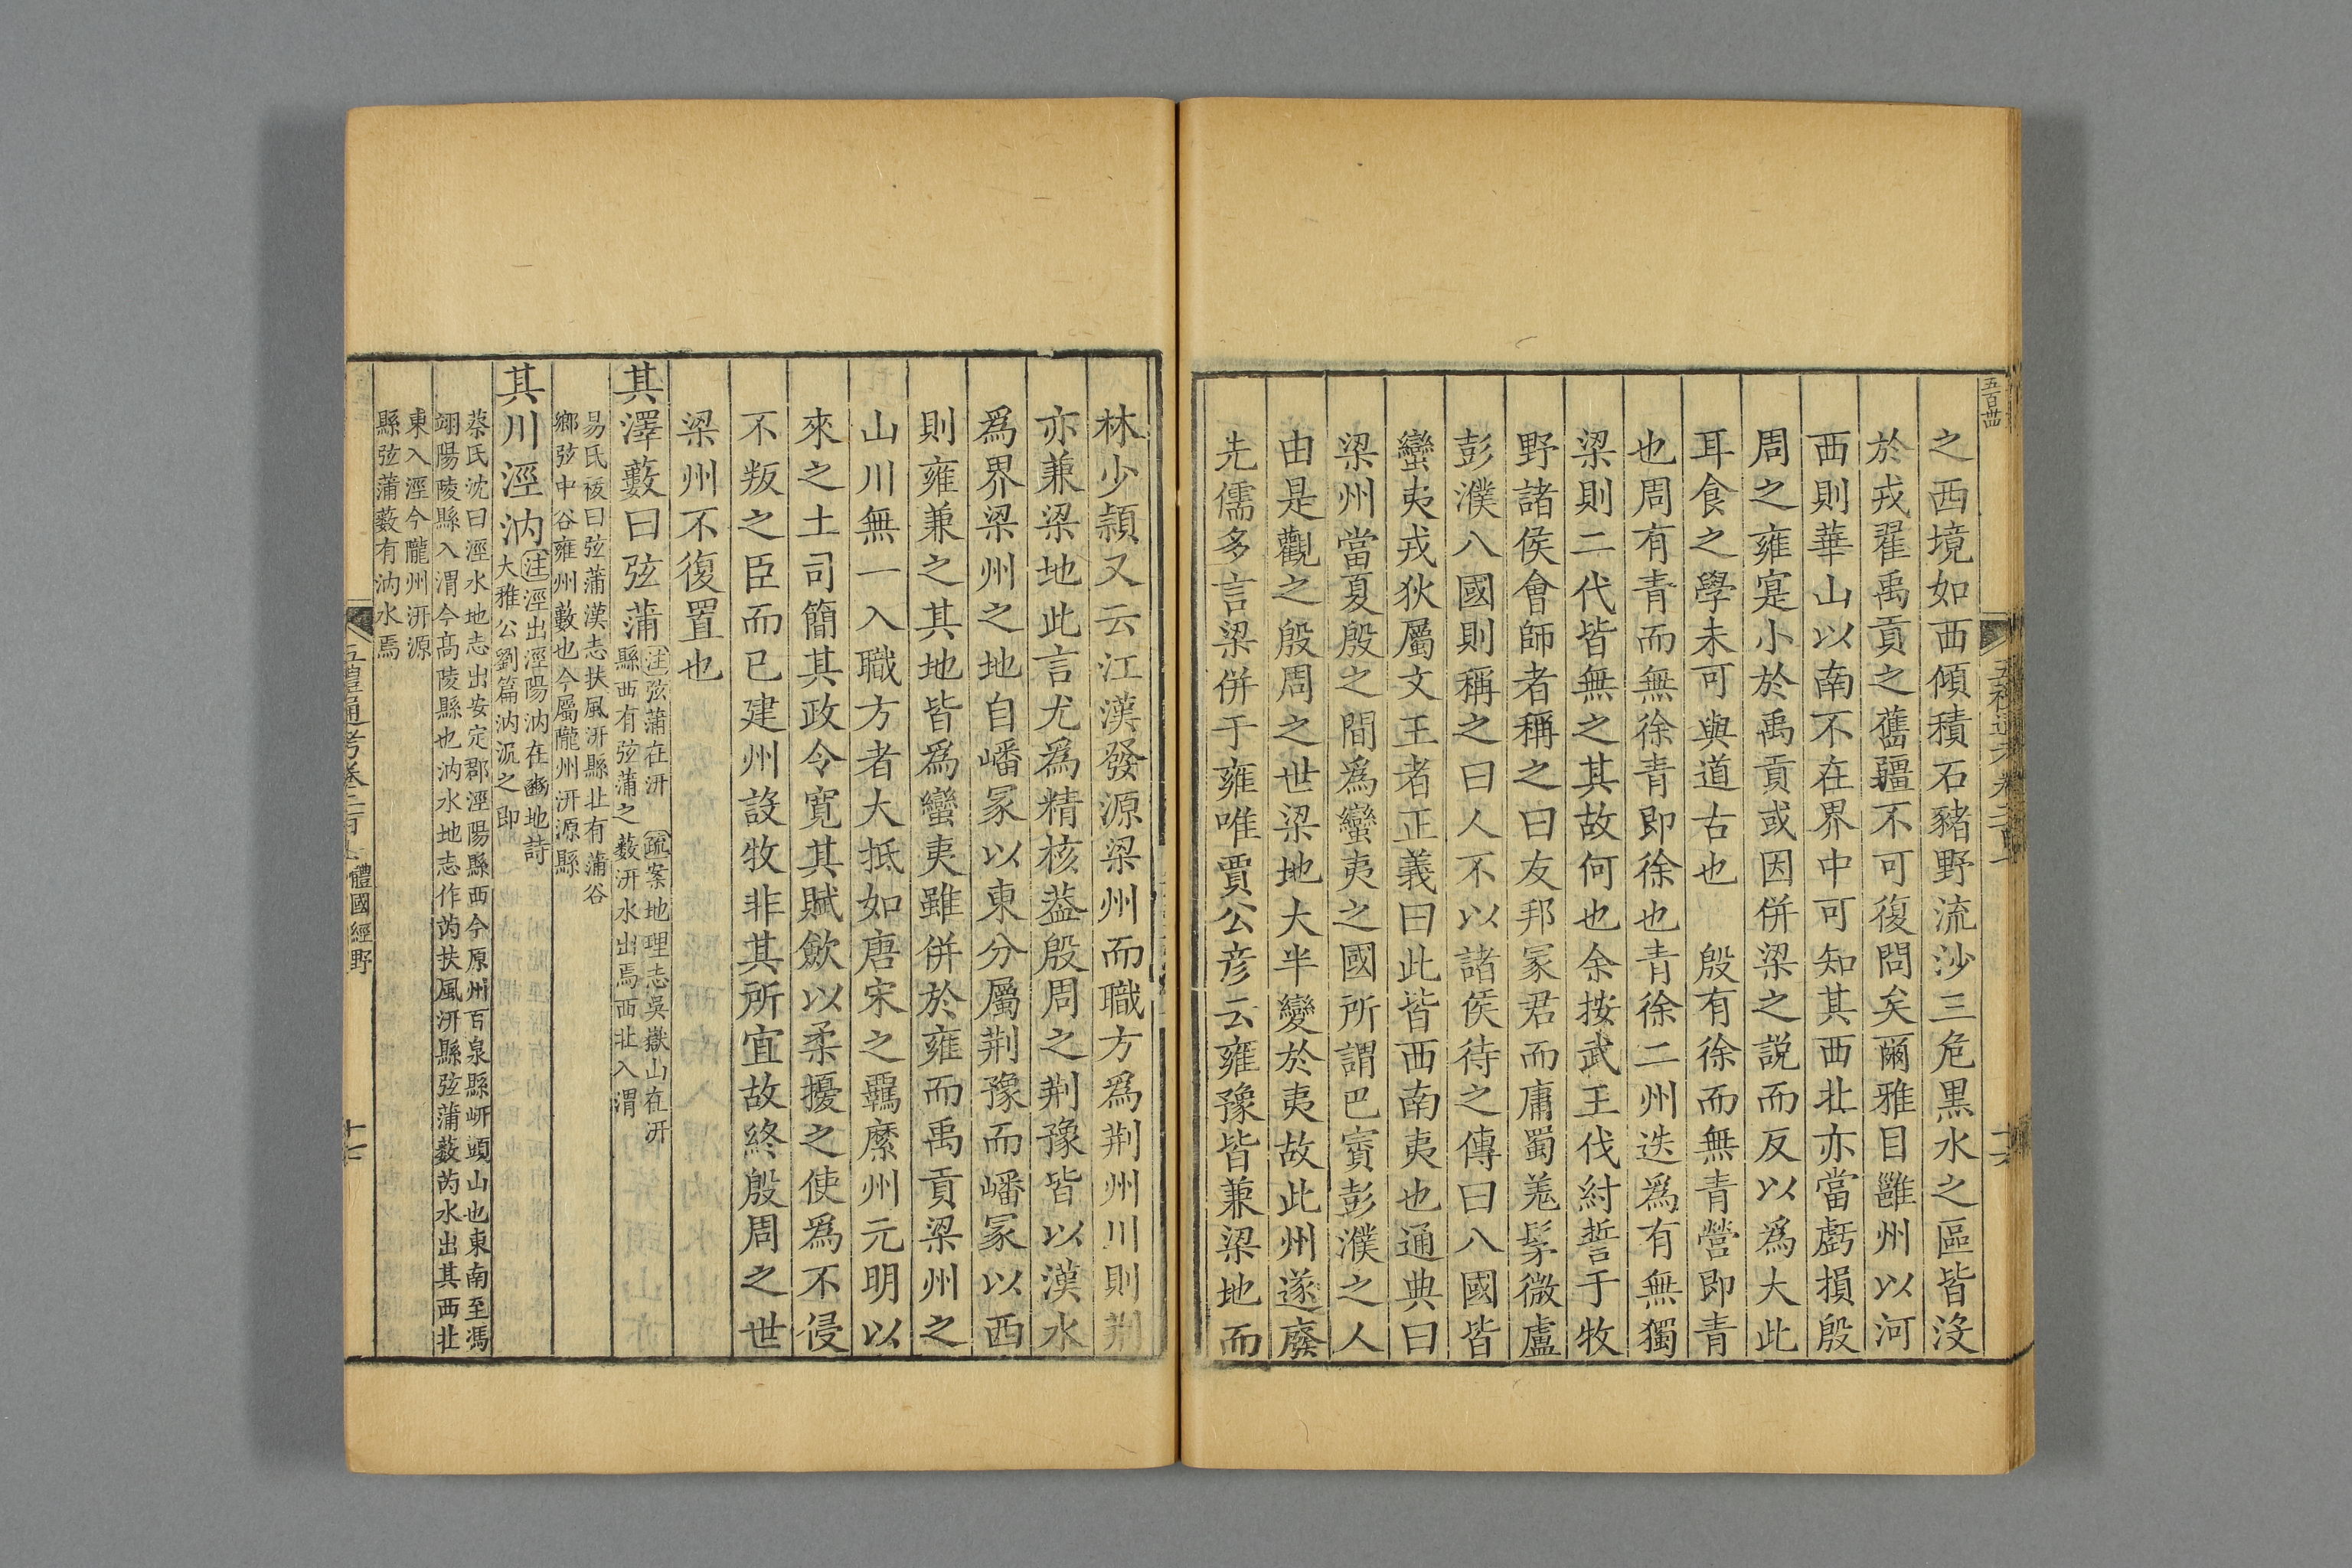 五百卌
五禮通考卷二百
十六
之西境如西傾積石豬野流沙三危黑水之區皆沒
於戎翟禹貢之舊疆不可復問矣爾雅目雝州以河
西則華山以南不在界中可知其西北亦當虧損殷
周之雍寔小於禹貢或因併梁之說而反以爲大此
耳食之學未可與道古也　殷有徐而無青營即青
也周有青而無徐青即徐也青徐二州迭爲有無獨
梁則二代皆無之其故何也余按武王伐紂誓于牧
野諸侯會師者稱之曰友邦冢君而庸蜀羗髳微盧
彭濮八國則稱之曰人不以諸侯待之傳曰八國皆
蠻夷戎狄屬文王者正義曰此皆西南夷也通典曰
梁州當夏殷之間爲蠻夷之國所謂巴賨彭濮之人
由是觀之殷周之世梁地大半變於夷故此州遂廢
先儒多言梁併于雍唯賈公彥云雍豫皆兼梁地而
林少頴又云江漢發源梁州而職方爲荆州川則荆
亦兼梁地此言尤爲精核葢殷周之荆豫皆以漢水
爲界梁州之地自嶓冢以東分屬荆豫而嶓冢以西
則雍兼之其地皆爲蠻夷雖併於雍而禹貢梁州之
山川無一入職方者大抵如唐宋之羈縻州元明以
來之土司簡其政令寬其賦歛以柔擾之使爲不侵
不叛之臣而已建州設牧非其所宜故終殷周之世
梁州不復置也
其澤藪曰弦蒲注弦蒲在汧　疏案地理志吳嶽山在汧
縣西有弦蒲之藪汧水出焉西北入渭
易氏祓曰弦蒲漢志扶風汧縣北有蒲谷
鄉弦中谷雍州藪也今屬隴州汧源縣
其川涇汭注涇出涇陽汭在豳地詩
大雅公劉篇汭泦之即
蔡氏沈曰涇水地志出安定郡涇陽縣西今原州百泉縣岍頭山也東南至馮
翊陽陵縣入渭今高陵縣也汭水地志作芮扶風汧縣弦蒲藪芮水出其西北
東入涇今隴州汧源
縣弦蒲藪有汭水焉
五禮通考卷二百七　體國經野
十七